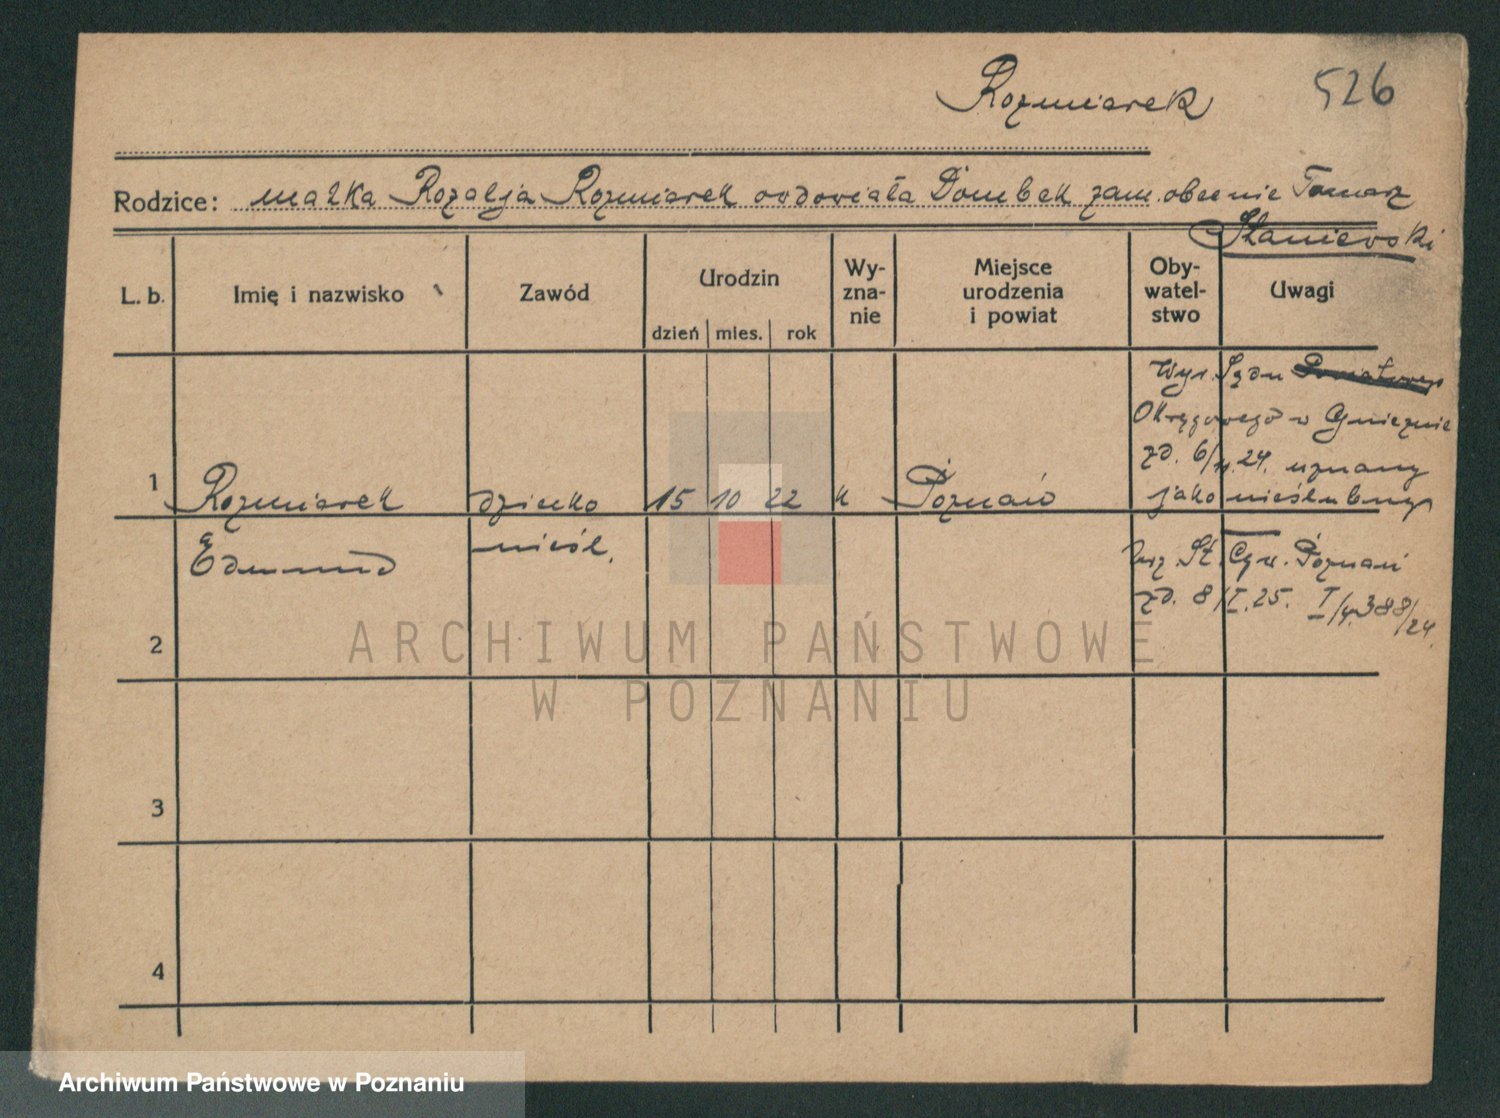 Rozmiarek 526
Rodzice: matka Rozalja Rozmiarek owdowiała Dombek zam. obecnie Tomasz
Staniewski
L. b. Imię i nazwisko Zawód Urodzin dzień mies. rok Wy-zna-nie Miejsce urodzenia i powiat Oby-watel-stwo Uwagi
Wyr. Sądu Powiatowego
Okręgowego w Gnieźnie
zd. 6/11.24. uznany
jako nieślubny
1 Rozmiarek dziecko 15 10 22 k Poznań
Edmund nieśl.
Urz. St. Cyw. Poznań
zd. 8/I.25. I/4.388/24.
2
3
4
ARCHIWUM PAŃSTWOWE
W POZNANIU
Archiwum Państwowe w Poznaniu